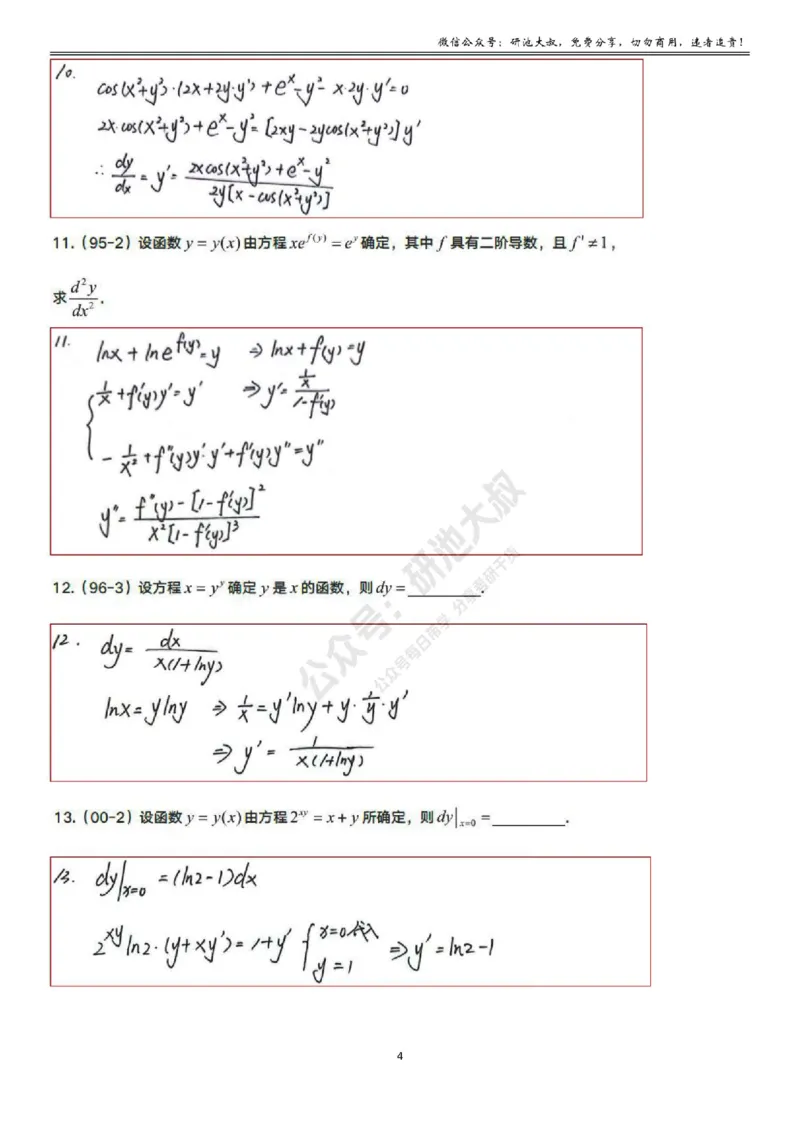 微信公众号：研池大叔，免费分享，切勿商用，违者追责！
10.
cos(x²+y²)·(2x+2y·y')+eˣ-y²-x·2y·y'=0
2x·cos(x²+y²)+eˣ-y²=[2xy-2ycos(x²+y²)]y'
∴ dy/dx = y' = (2xcos(x²+y²)+eˣ-y²)/(2y[x-cos(x²+y²)])
11.（95-2）设函数 y = y(x) 由方程 xe^{f(y)} = e^y 确定，其中 f 具有二阶导数，且 f' ≠ 1，
求 d²y/dx² .
11. lnx + lne^{f(y)} = y ⇒ lnx + f(y) = y
{ 1/x + f'(y)y' = y' ⇒ y' = (1/x)/(1-f'(y))
- 1/x² + f''(y)y'·y' + f'(y)y'' = y''
y'' = (f''(y) - [1-f'(y)]²)/(x²[1-f'(y)]³)
12.（96-3）设方程 x = y^y 确定 y 是 x 的函数，则 dy = ________.
12. dy = dx/(x(1+lny))
lnx = ylny ⇒ 1/x = y'lny + y·1/y·y'
⇒ y' = 1/(x(1+lny))
13.（00-2）设函数 y = y(x) 由方程 2^{xy} = x + y 所确定，则 dy|_{x=0} = ________.
13. dy|_{x=0} = (ln2-1)dx
2^{xy}ln2·(y+xy') = 1+y' { x=0代入 y=1 ⇒ y' = ln2-1
公众号：研池大叔
公众号每日带学 分享考研干货
4